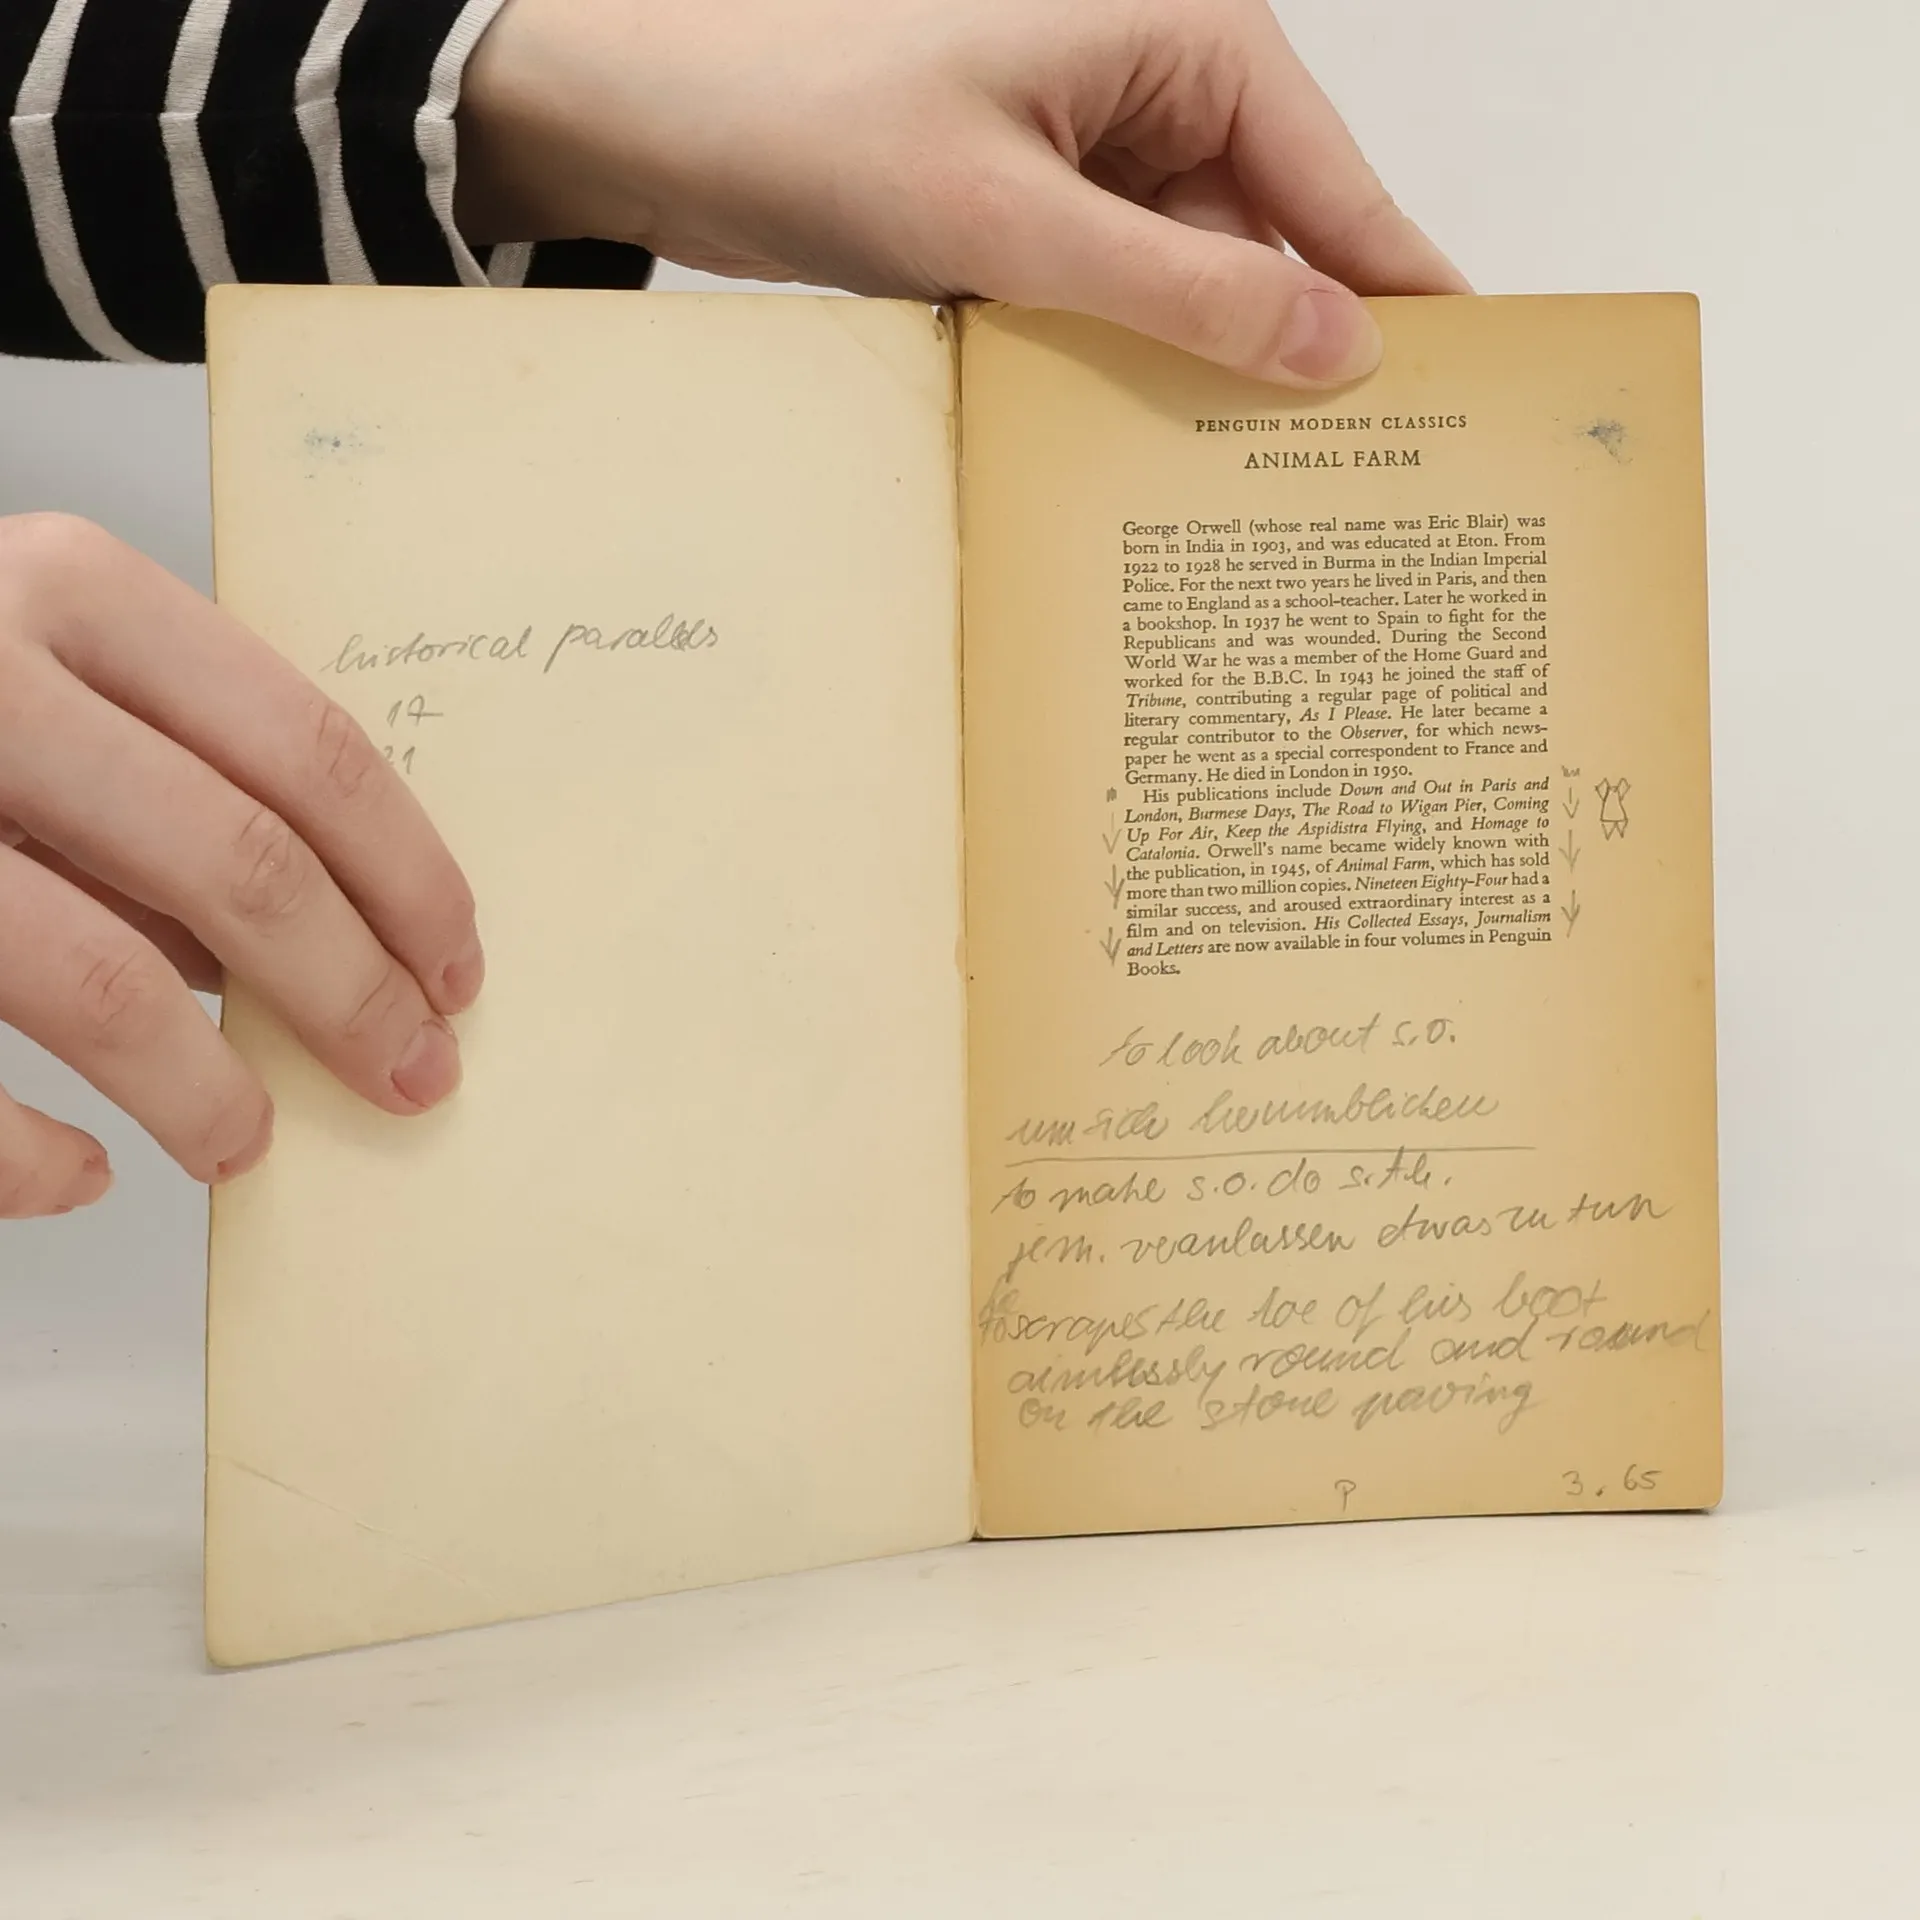 historical parallels
17
21
PENGUIN MODERN CLASSICS
ANIMAL FARM
George Orwell (whose real name was Eric Blair) was
born in India in 1903, and was educated at Eton. From
1922 to 1928 he served in Burma in the Indian Imperial
Police. For the next two years he lived in Paris, and then
came to England as a school-teacher. Later he worked in
a bookshop. In 1937 he went to Spain to fight for the
Republicans and was wounded. During the Second
World War he was a member of the Home Guard and
worked for the B.B.C. In 1943 he joined the staff of
Tribune, contributing a regular page of political and
literary commentary, As I Please. He later became a
regular contributor to the Observer, for which news-
paper he went as a special correspondent to France and
Germany. He died in London in 1950.
His publications include Down and Out in Paris and
London, Burmese Days, The Road to Wigan Pier, Coming
Up For Air, Keep the Aspidistra Flying, and Homage to
Catalonia. Orwell's name became widely known with
the publication, in 1945, of Animal Farm, which has sold
more than two million copies. Nineteen Eighty-Four had a
similar success, and aroused extraordinary interest as a
film and on television. His Collected Essays, Journalism
and Letters are now available in four volumes in Penguin
Books.
to look about s.o.
um sich herumblicken
to make s.o. do s.th.
jem. veranlassen etwas zu tun
scrapes the toe of his boot
aimlessly round and round
on the stone paving
P
3.65